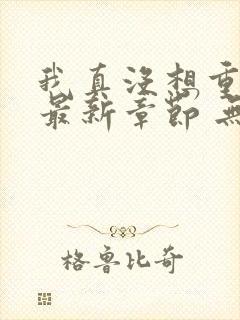 我真没想重
最新章节 無
格鲁比奇